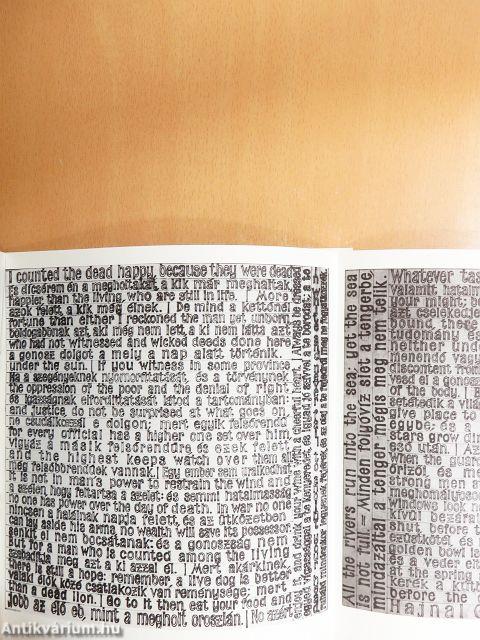 I counted the dead happy, because they were dead
És dicsérem én a megholtakat, a kik már meghaltak,
happier than the living, who are still in life. | More
azok felett, a kik még élnek. | De mind a kettőnél
fortune than either I reckoned the man yet unborn,
boldogabbnak azt, aki még nem lett, a ki nem látta azt
who had not witnessed and wicked deeds done here
a gonosz dolgot a mely a nap alatt történik.
under the sun. | If you witness in some province
Ha a szegényeknek nyomoríttatását, és a törvénynek
the oppression of the poor and the denial of right
és igazságnak elfordíttatását látod a tartományban:
and justice, do not be surprised at what goes on,
ne csudálkozzál e dolgon; mert egyik felsőrendű
for every official has a higher one set over him,
vigyáz a másik felsőrendűre és ezek felett
and the highest keeps watch over them all.
még felsőbbrendűek vannak. | Egy ember sem uralkodhat
It is not in man's power to restrain the wind and
a szélen, hogy feltartsa a szelet: és semmi hatalmasság
no one has power over the day of death. In war no one
nincsen a halálnak napja felett, és az ütközetben
can lay aside his arms, no wealth will save its possessor.
senkit el nem bocsátanak: és a gonoszság nem
But for a man who is counted among the living
szabadítja meg azt, a ki azzal él. | Mert akárkinek,
there is still hope: remember, a live dog is better
valaki élők közé csatlakozik van reménysége; mert
than a dead lion. | Go to it then, eat your food and
jobb az élő eb, mint a megholt oroszlán. | No azért,
All the rivers run into the sea; yet the sea
is not full = Minden folyóvíz siet a tengerbe;
mindazáltal a tenger mégis meg nem telik.
Whatever tas
valamit hatalm
your might; be
azt cselekedje
bound, there
tudomány és
nether under
menendő vagy
discontent from
vesd el a gonosz
of the body. | A
setétedik a vilá
give place to
egybe; és a
stars grow di
eső után. | Az
when the guar
őrizői, és me
strong men s
meghomályoso
windows look n
kívül bezárat
shut, before
ezüstkötél, és
golden bowl is
és a veder elt
at the spring
kerék a kúth
before the
Hajnalo
Antikvárium.hu